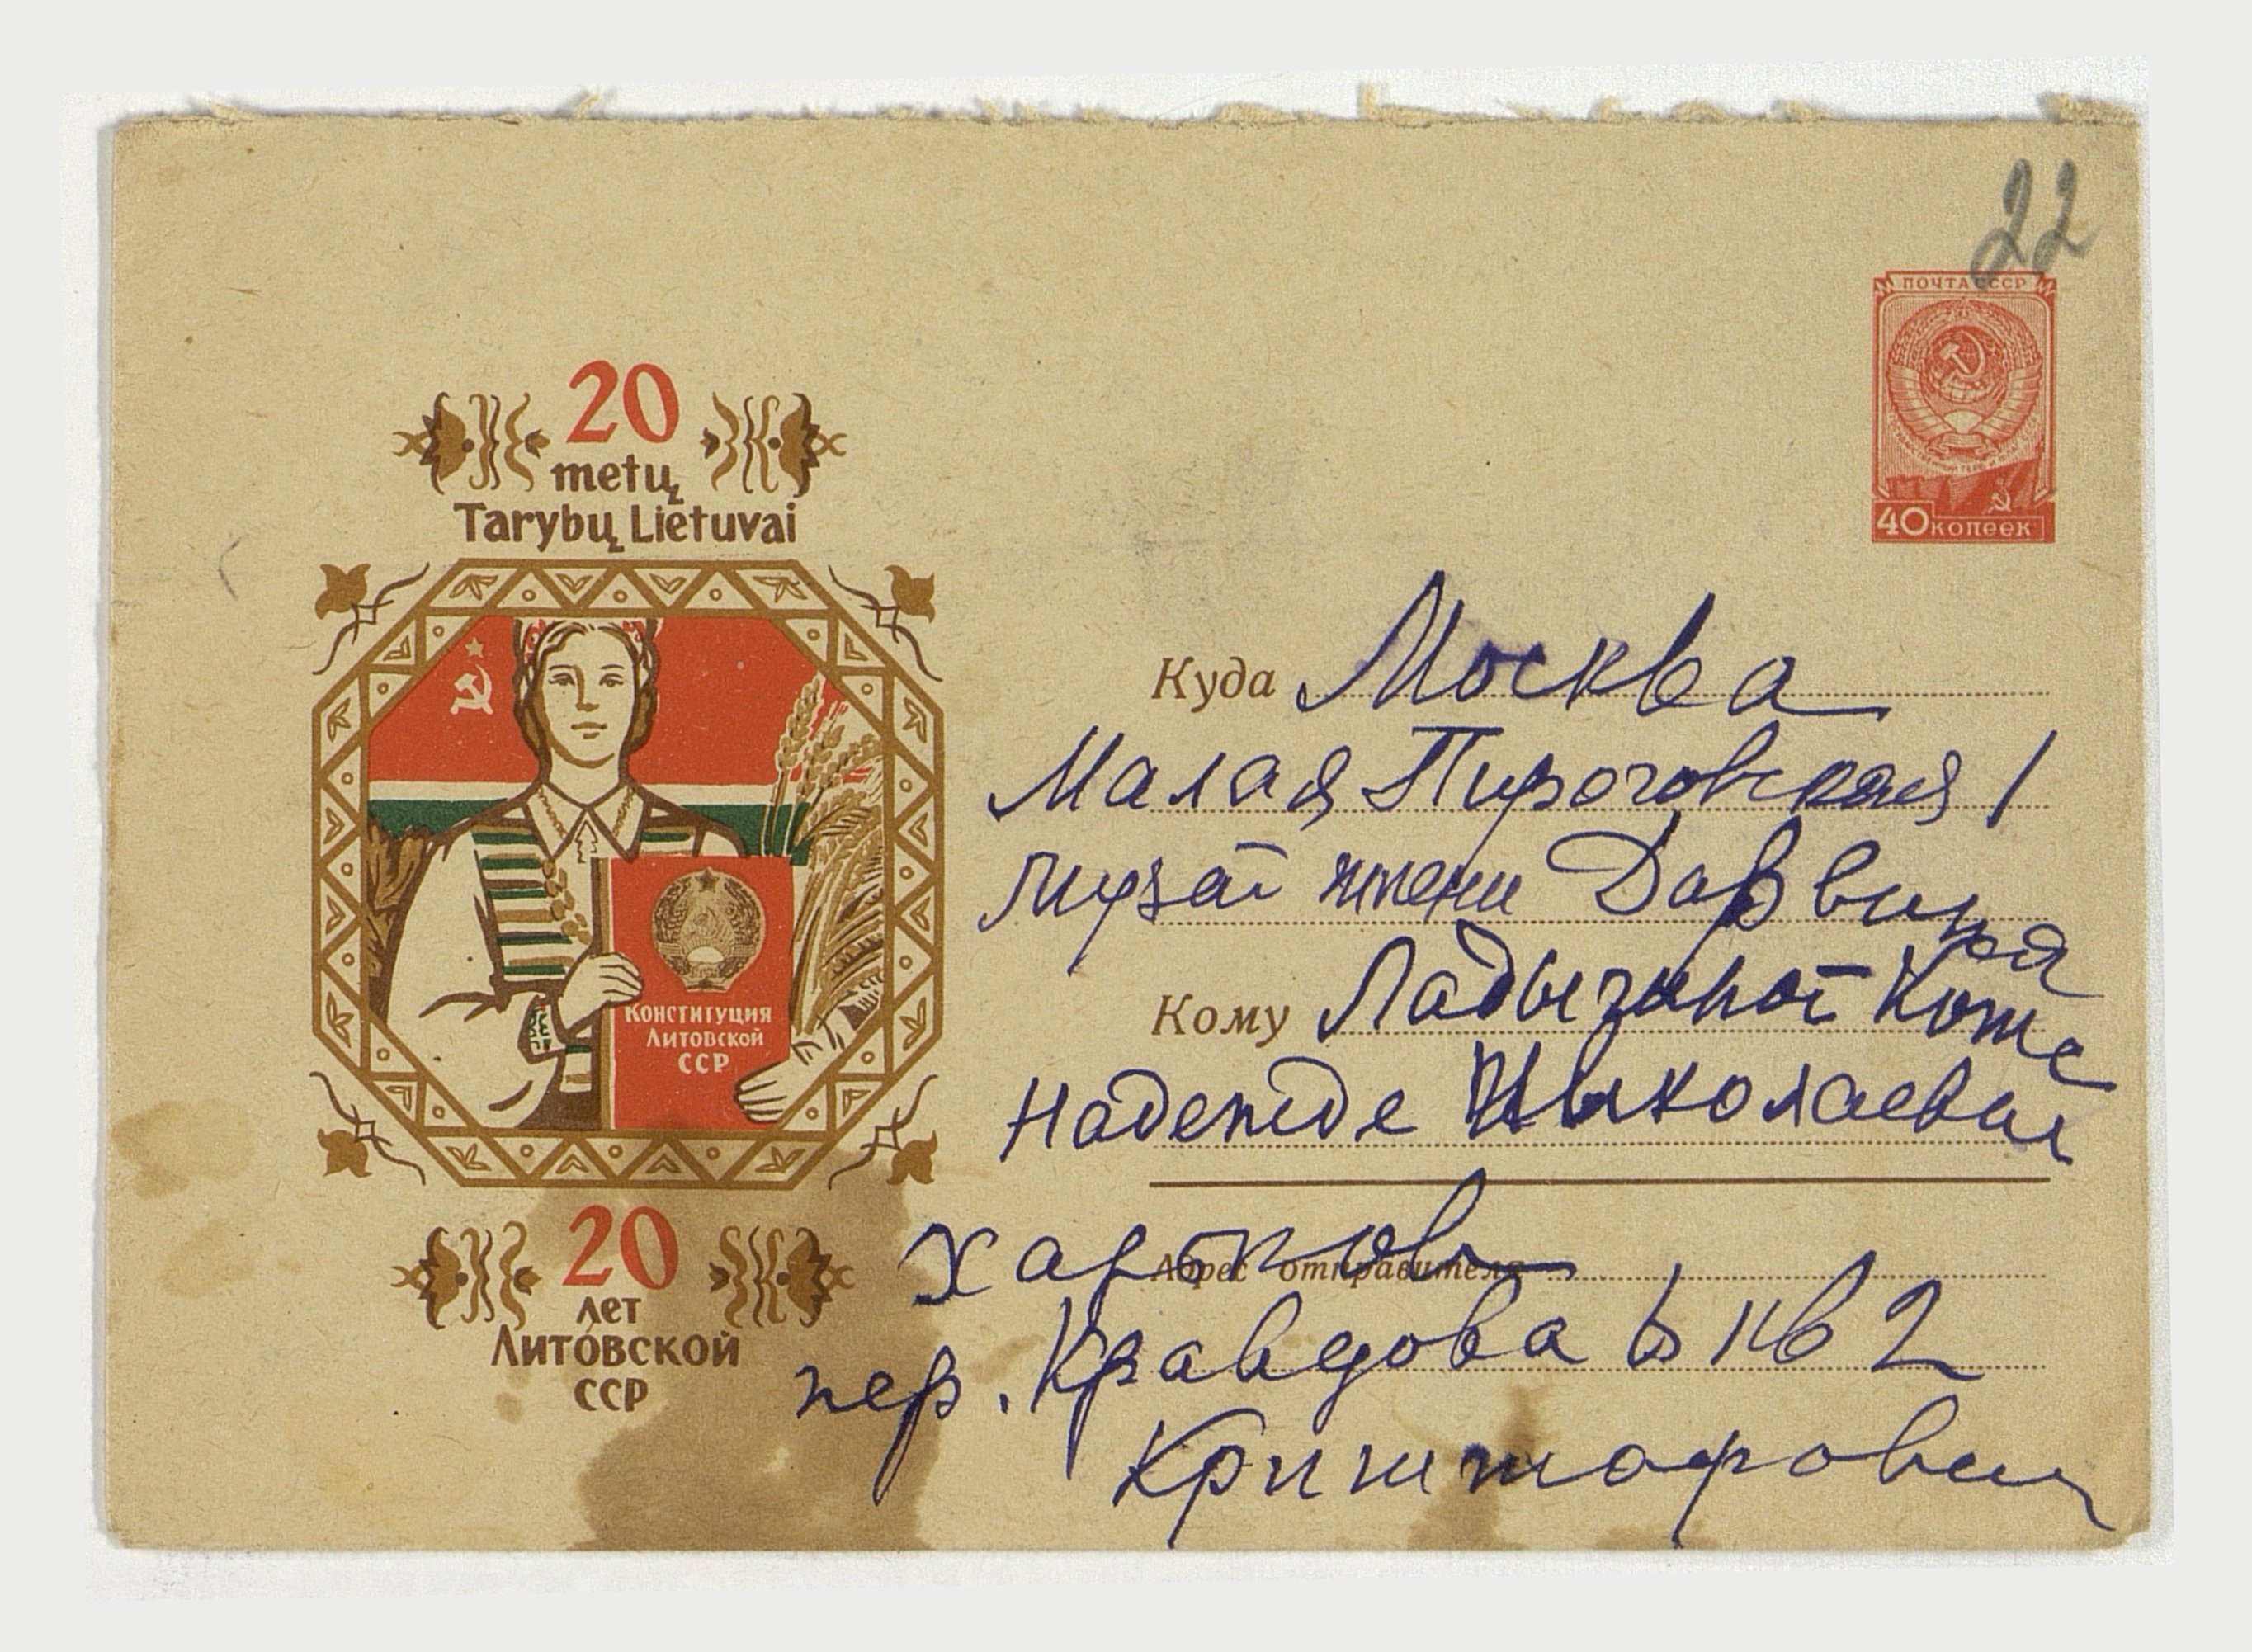 22
ПОЧТА СССР
40 копеек
20
metų
Tarybų Lietuvai
Конституция
Литовской
ССР
20
лет
Литовской
ССР
Куда Москва
Малая Пироговская 1
музей имени Дарвина
Кому Ладыгиной Котс
Надежде Николаевне
Харьков
Адрес отправителя
пер. Кравцова 6 кв 2
Криштофович